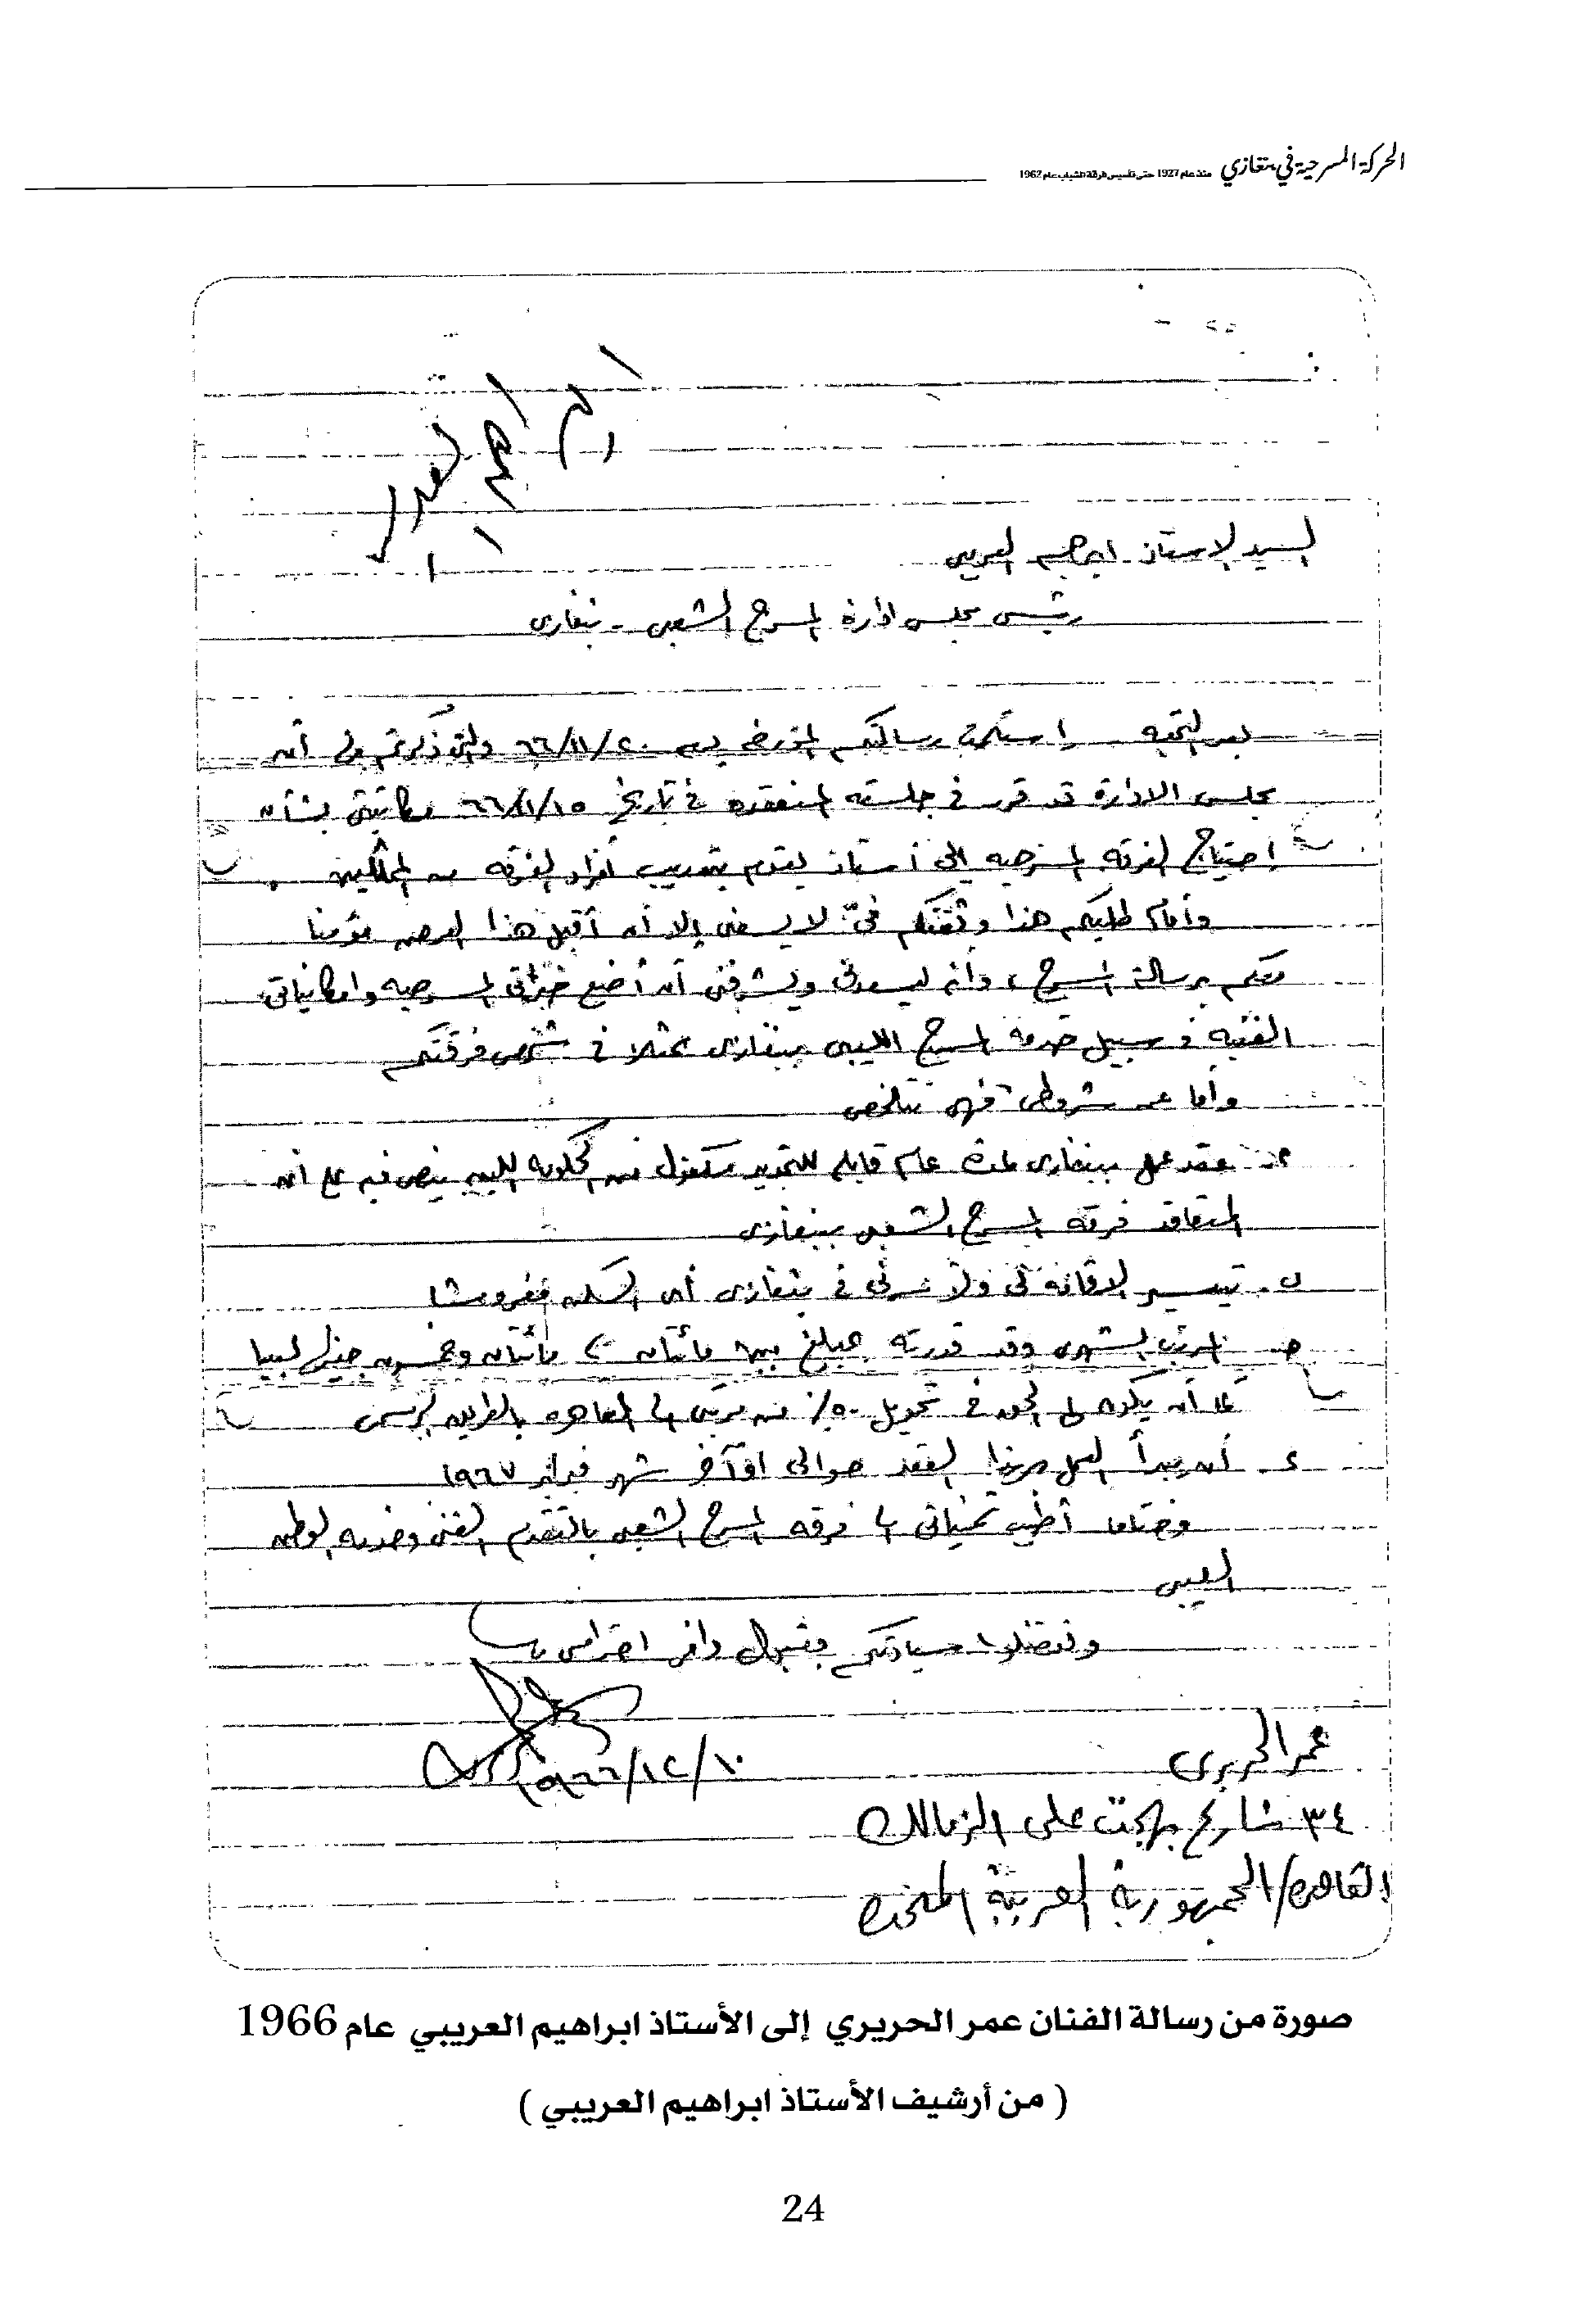 الحركة المسرحية في بنغازي منذ عام 1927 حتى تأسيس فرقة الشباب عام 1962
ابراهيم العريبي
السيد الاستاذ ابراهيم العريبي
رئيس مجلس ادارة المسرح الشعبي - بنغازى
بعد التحيه - استلمت رسالتكم المؤرخه ٢٠/١١/٦٦ والتى ذكرتم فى أن
مجلس الادارة قد قرر فى جلسته المنعقده فى تاريخ ١٥/١١/٦٦ مكاتبتى بشأن
احتياج الفرقه المسرحيه إلى أستاذ يقوم بتدريب أفراد الفرقه من الممثلين .
وأمام طلبكم هذا وثقتكم فىّ لا يسعنى إلا أن أقبل هذا العرض مؤمنا
معكم برسالة المسرح ، وأنه ليسعدنى ويشرفنى أن أضع خبراتى المسرحيه وامكانياتى
الفنيه فى سبيل خدمة المسرح الليبى ببنغازى ممثلا فى شخص فرقتكم
وأما عن شروطى فهى تتلخص
عقد عمل ببنغازى لمدة عام قابل للتجديد من الحكومه الليبيه ينص فيه على أن
المتعاقد فرقه المسرح الشعبى ببنغازى
ب - تيسير الاقامه لى ولأسرتى فى بنغازى أى السكن مفروشا
جـ - المرتب الشهرى وقد قدرته بمبلغ بين مائتان - مائتان وخمسون جنيها ليبيا
على أن يكون لى الحق فى تحويل ٥٠٪ من مرتبى الى القاهره بالطريق الرسمى
ء - أن يبدأ العمل بهذا العقد حوالى أواخر شهر فبراير ١٩٦٧
وختاما أطيب تمنياتى الى فرقه المسرح الشعبى بالتقدم الفنى وخدمه الوطن
الليبى
وتفضلوا سيادتكم بقبول وافر احترامى
عمر الحريرى
١٠/١٢/١٩٦٦
٣٤ شارع بهجت على الزمالك
القاهرة/الجمهورية العربية المتحدة
صورة من رسالة الفنان عمر الحريري إلى الأستاذ ابراهيم العريبي عام 1966
( من أرشيف الأستاذ ابراهيم العريبي )
24